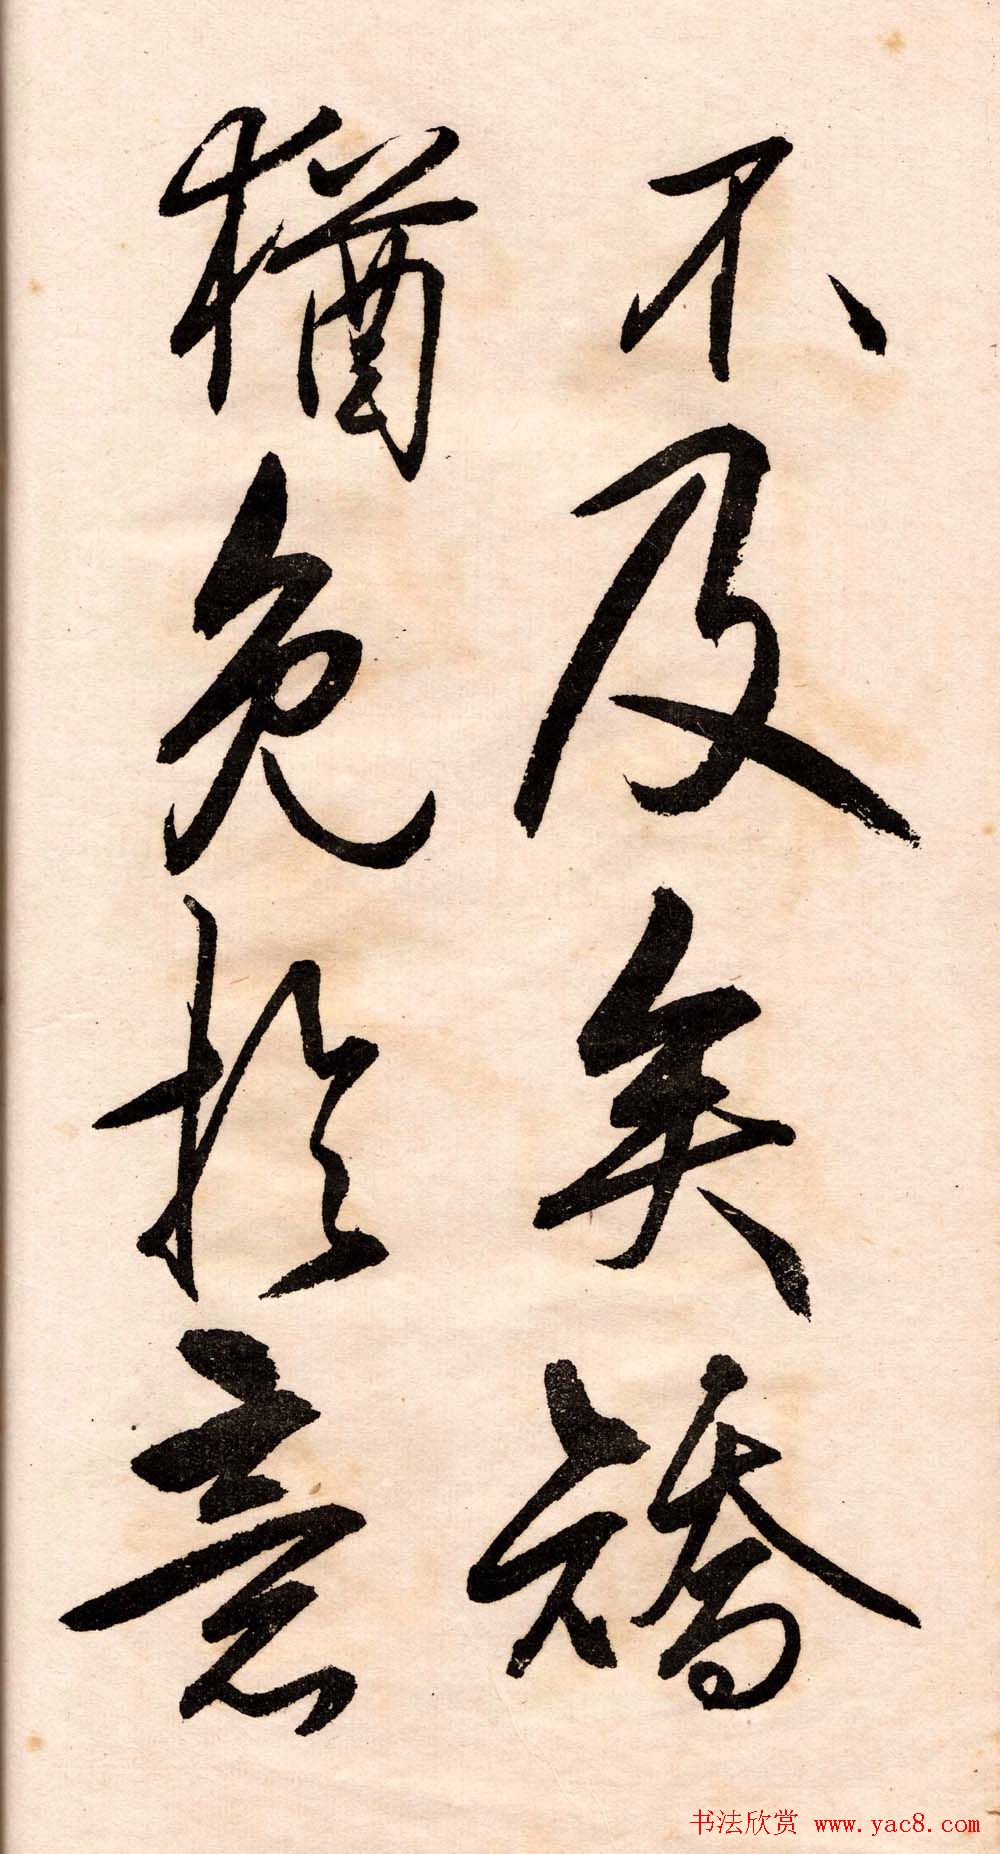 不及矣矯
猶免於意
书法欣赏 www.yac8.com